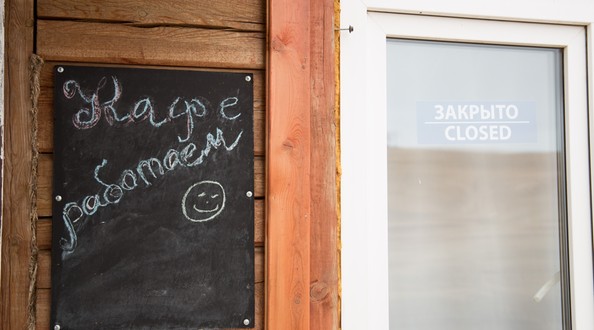 Кафе
работаем
ЗАКРЫТО
CLOSED